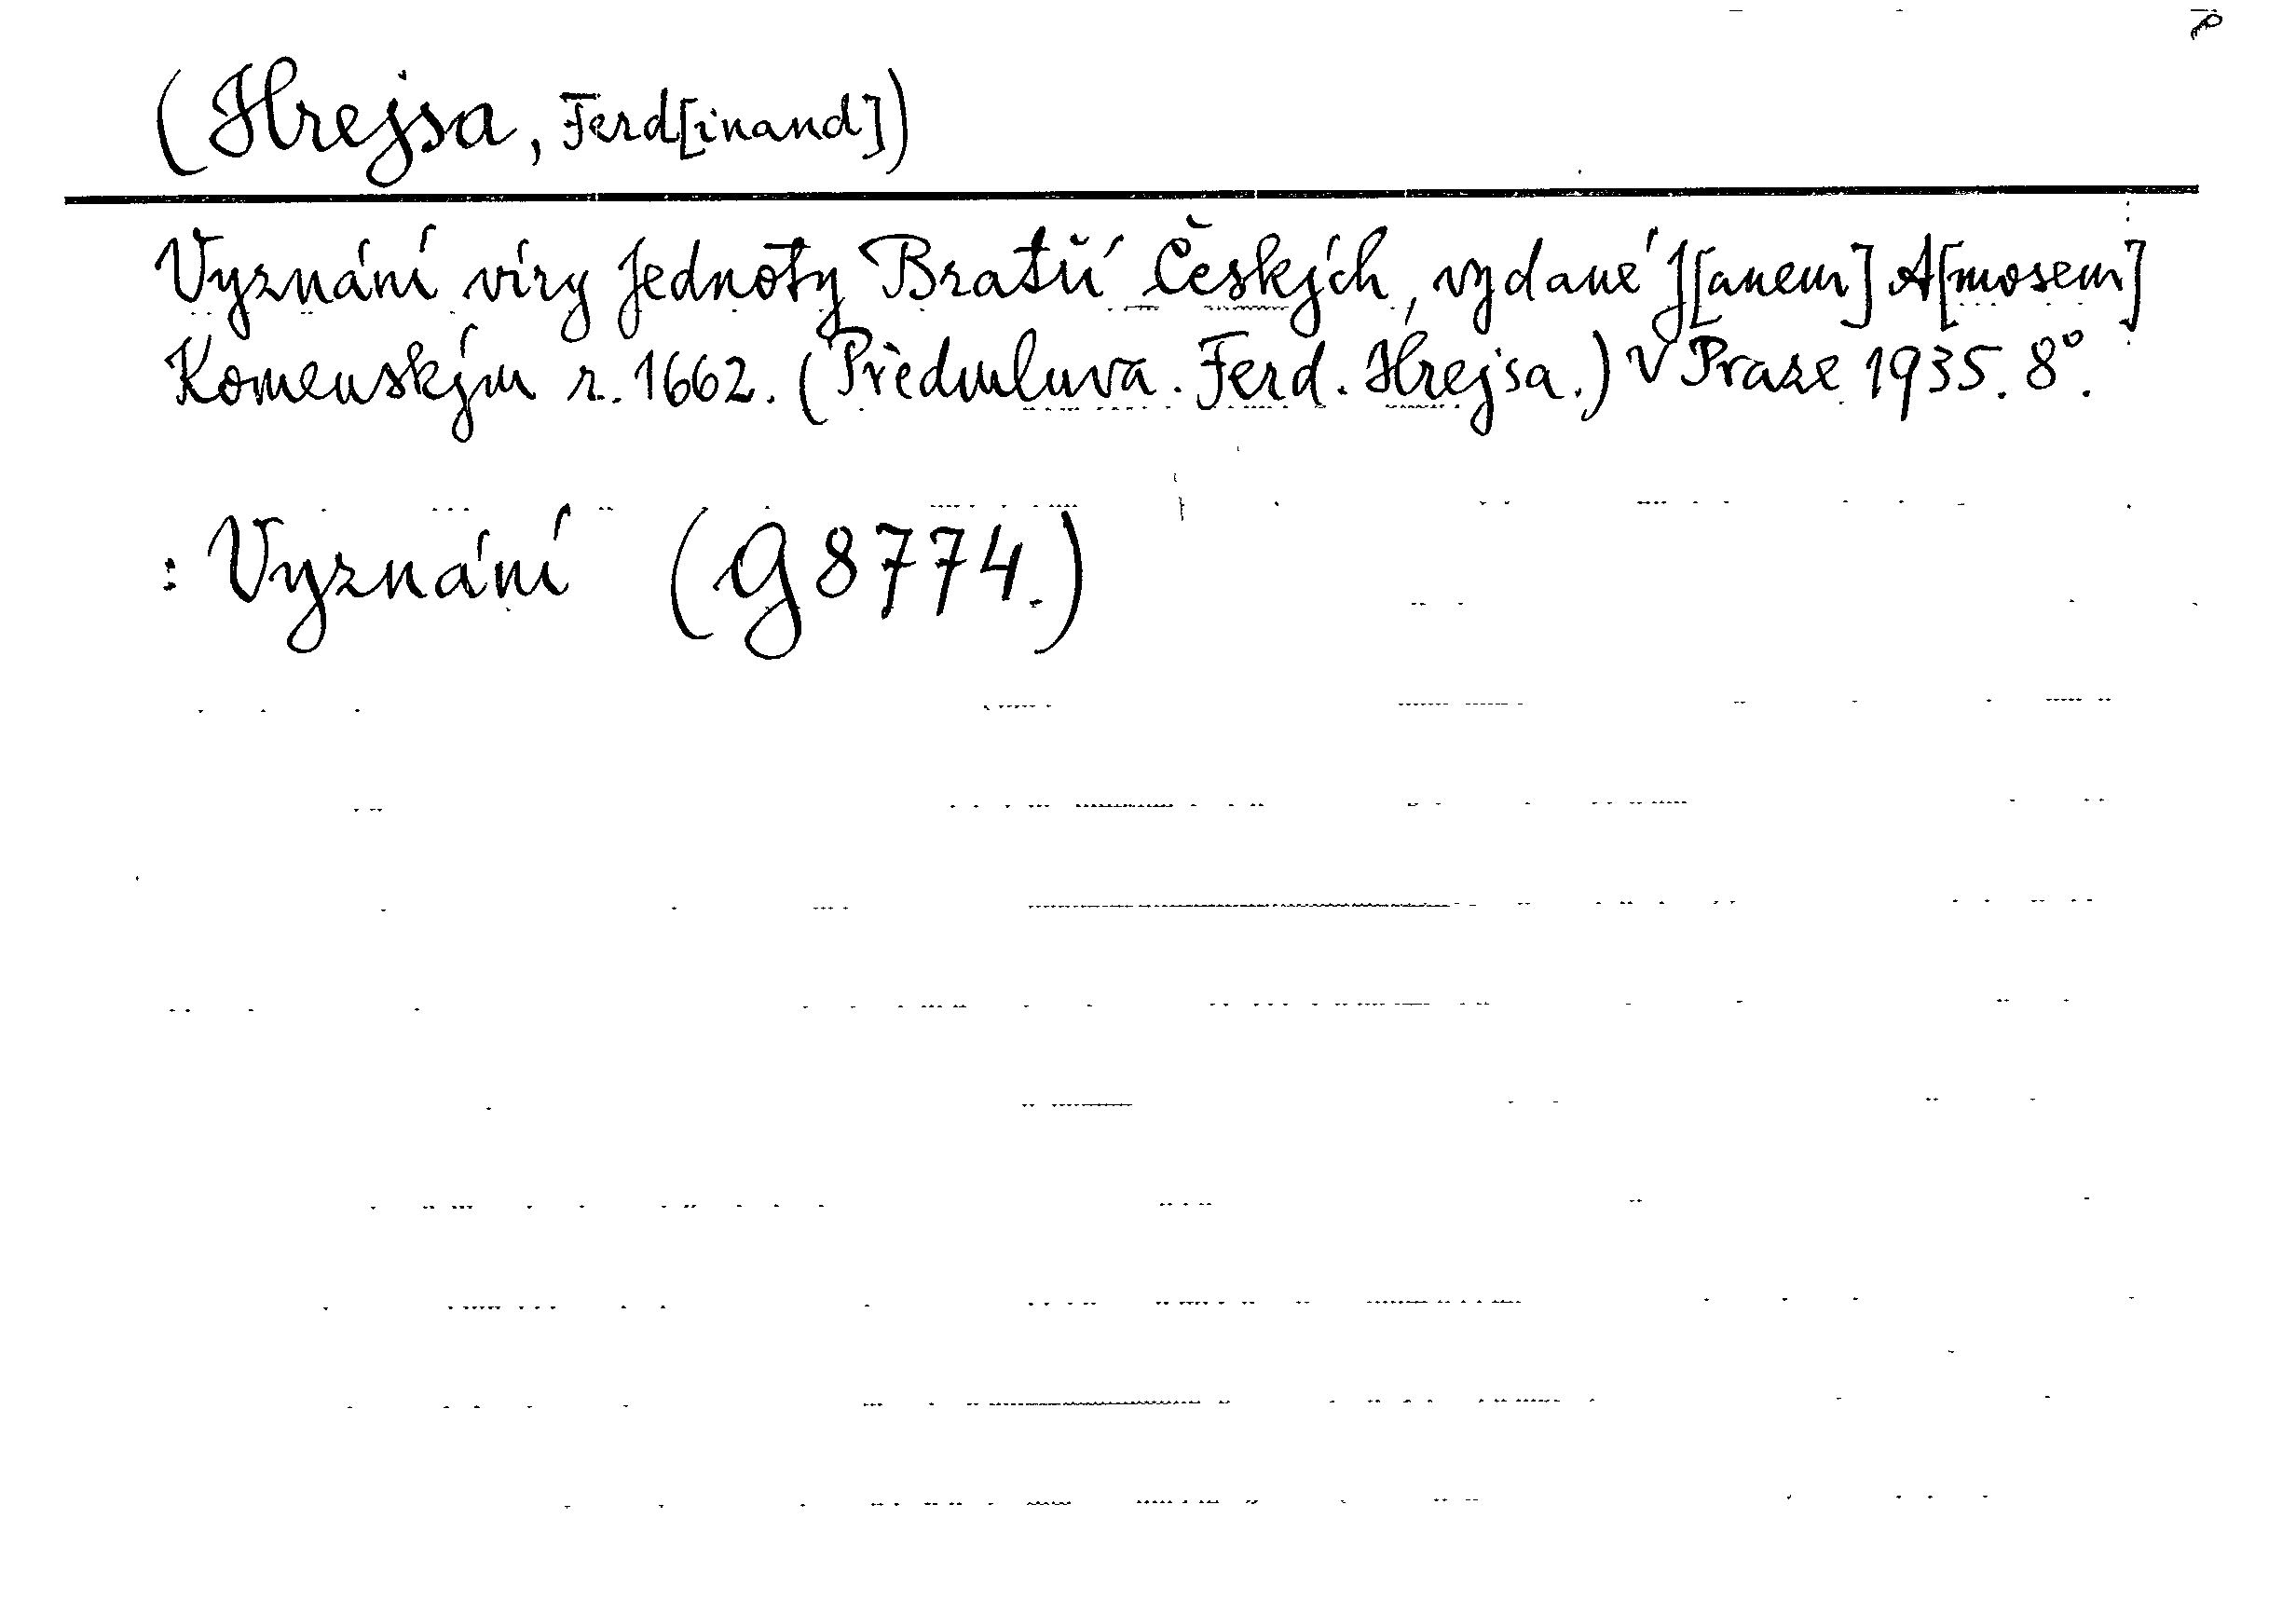 (Hrejsa, Ferd[inand])
Vyznání víry Jednoty Bratří Českých, vydané J[anem] A[mosem]
Komenským r. 1662. (Předmluva. Ferd. Hrejsa.) V Praze 1935. 8°.
: Vyznání (G 8774.)